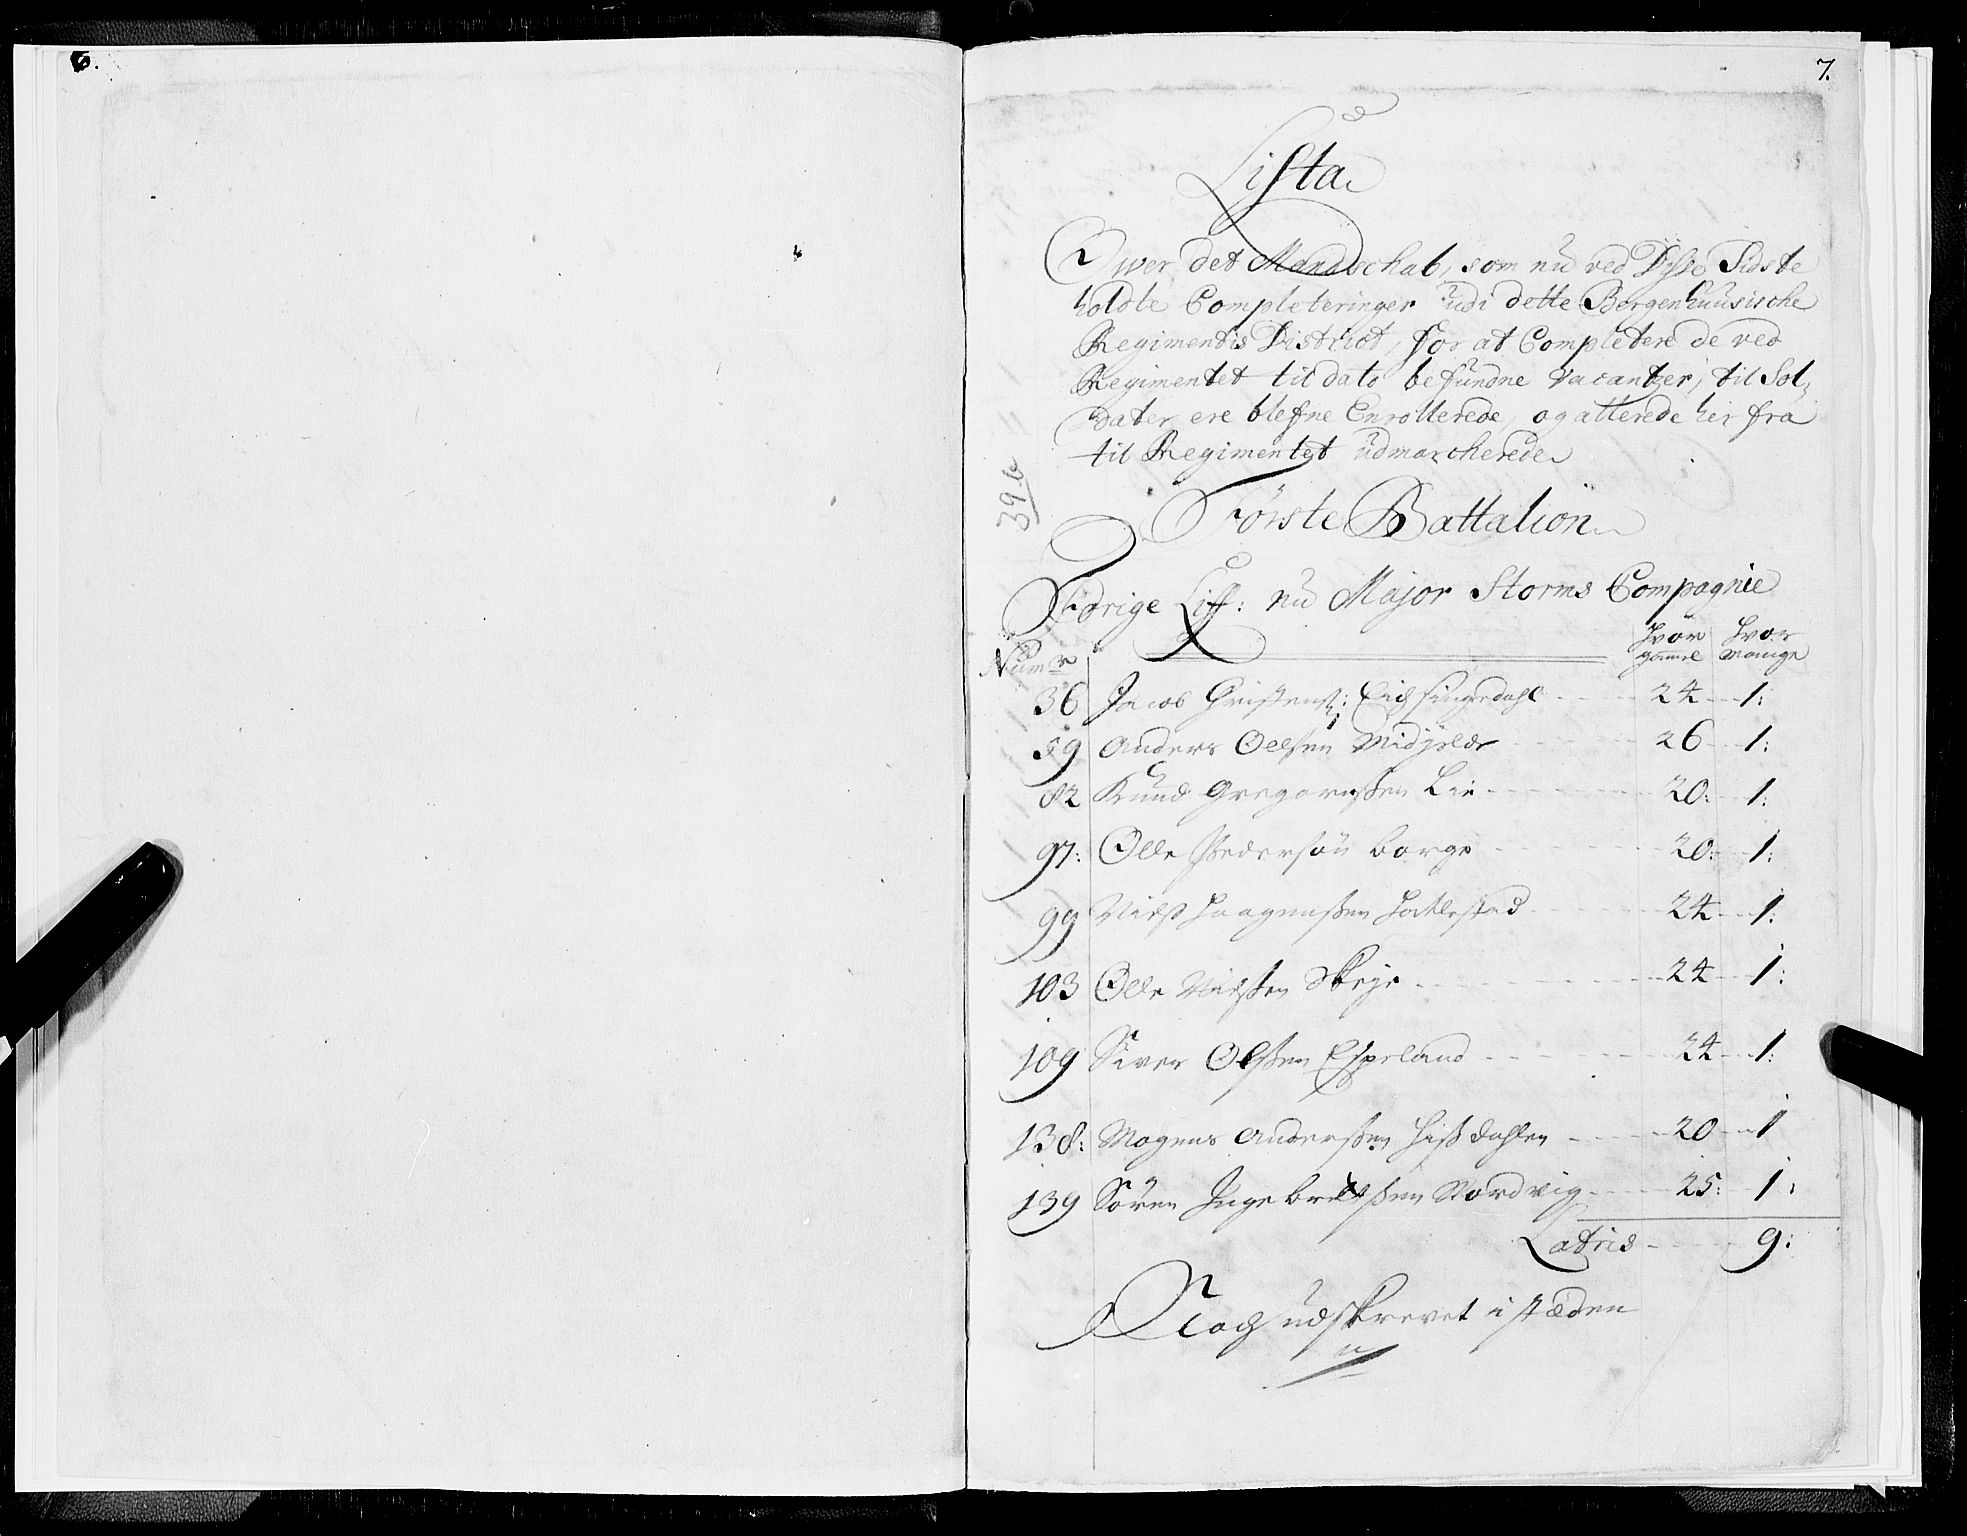 6.
7.
Lista
Ower det Mandschab, som nu ved Disse Sidste
holdte Completeringer udi dette Bergenhuusische
Regimentis District, for at Completere de ved
Regimentet til dato befundne Vacantzer, til Sol,
dater ere blefne Enrollerede, og allerede her fra
til Regimentet udmarcherede
39b
Förste Battalion
Fidrige Liff: nu Major Storms Compagnie
Num r Hvor gamel Hvor mange
36 Jacob Christens: Eidsfingerdahl 24 1:
59 Anders Oelsen Midjelde 26 1:
82 Knud Gregorussen Lie 20: 1:
97: Olle Pedersön Borge 20: 1:
99 Nielss Haagenssen Hatlestad 24 1:
103 Olle Nielssen Skeje 24 1:
109 Siver Olssen Espeland 24 1:
138: Mogens Anderssen Hissdahlen 20 1
139 Sören Ingebretssen Nordvig 25: 1:
Latris 9:
Nock udskrevet i stæden